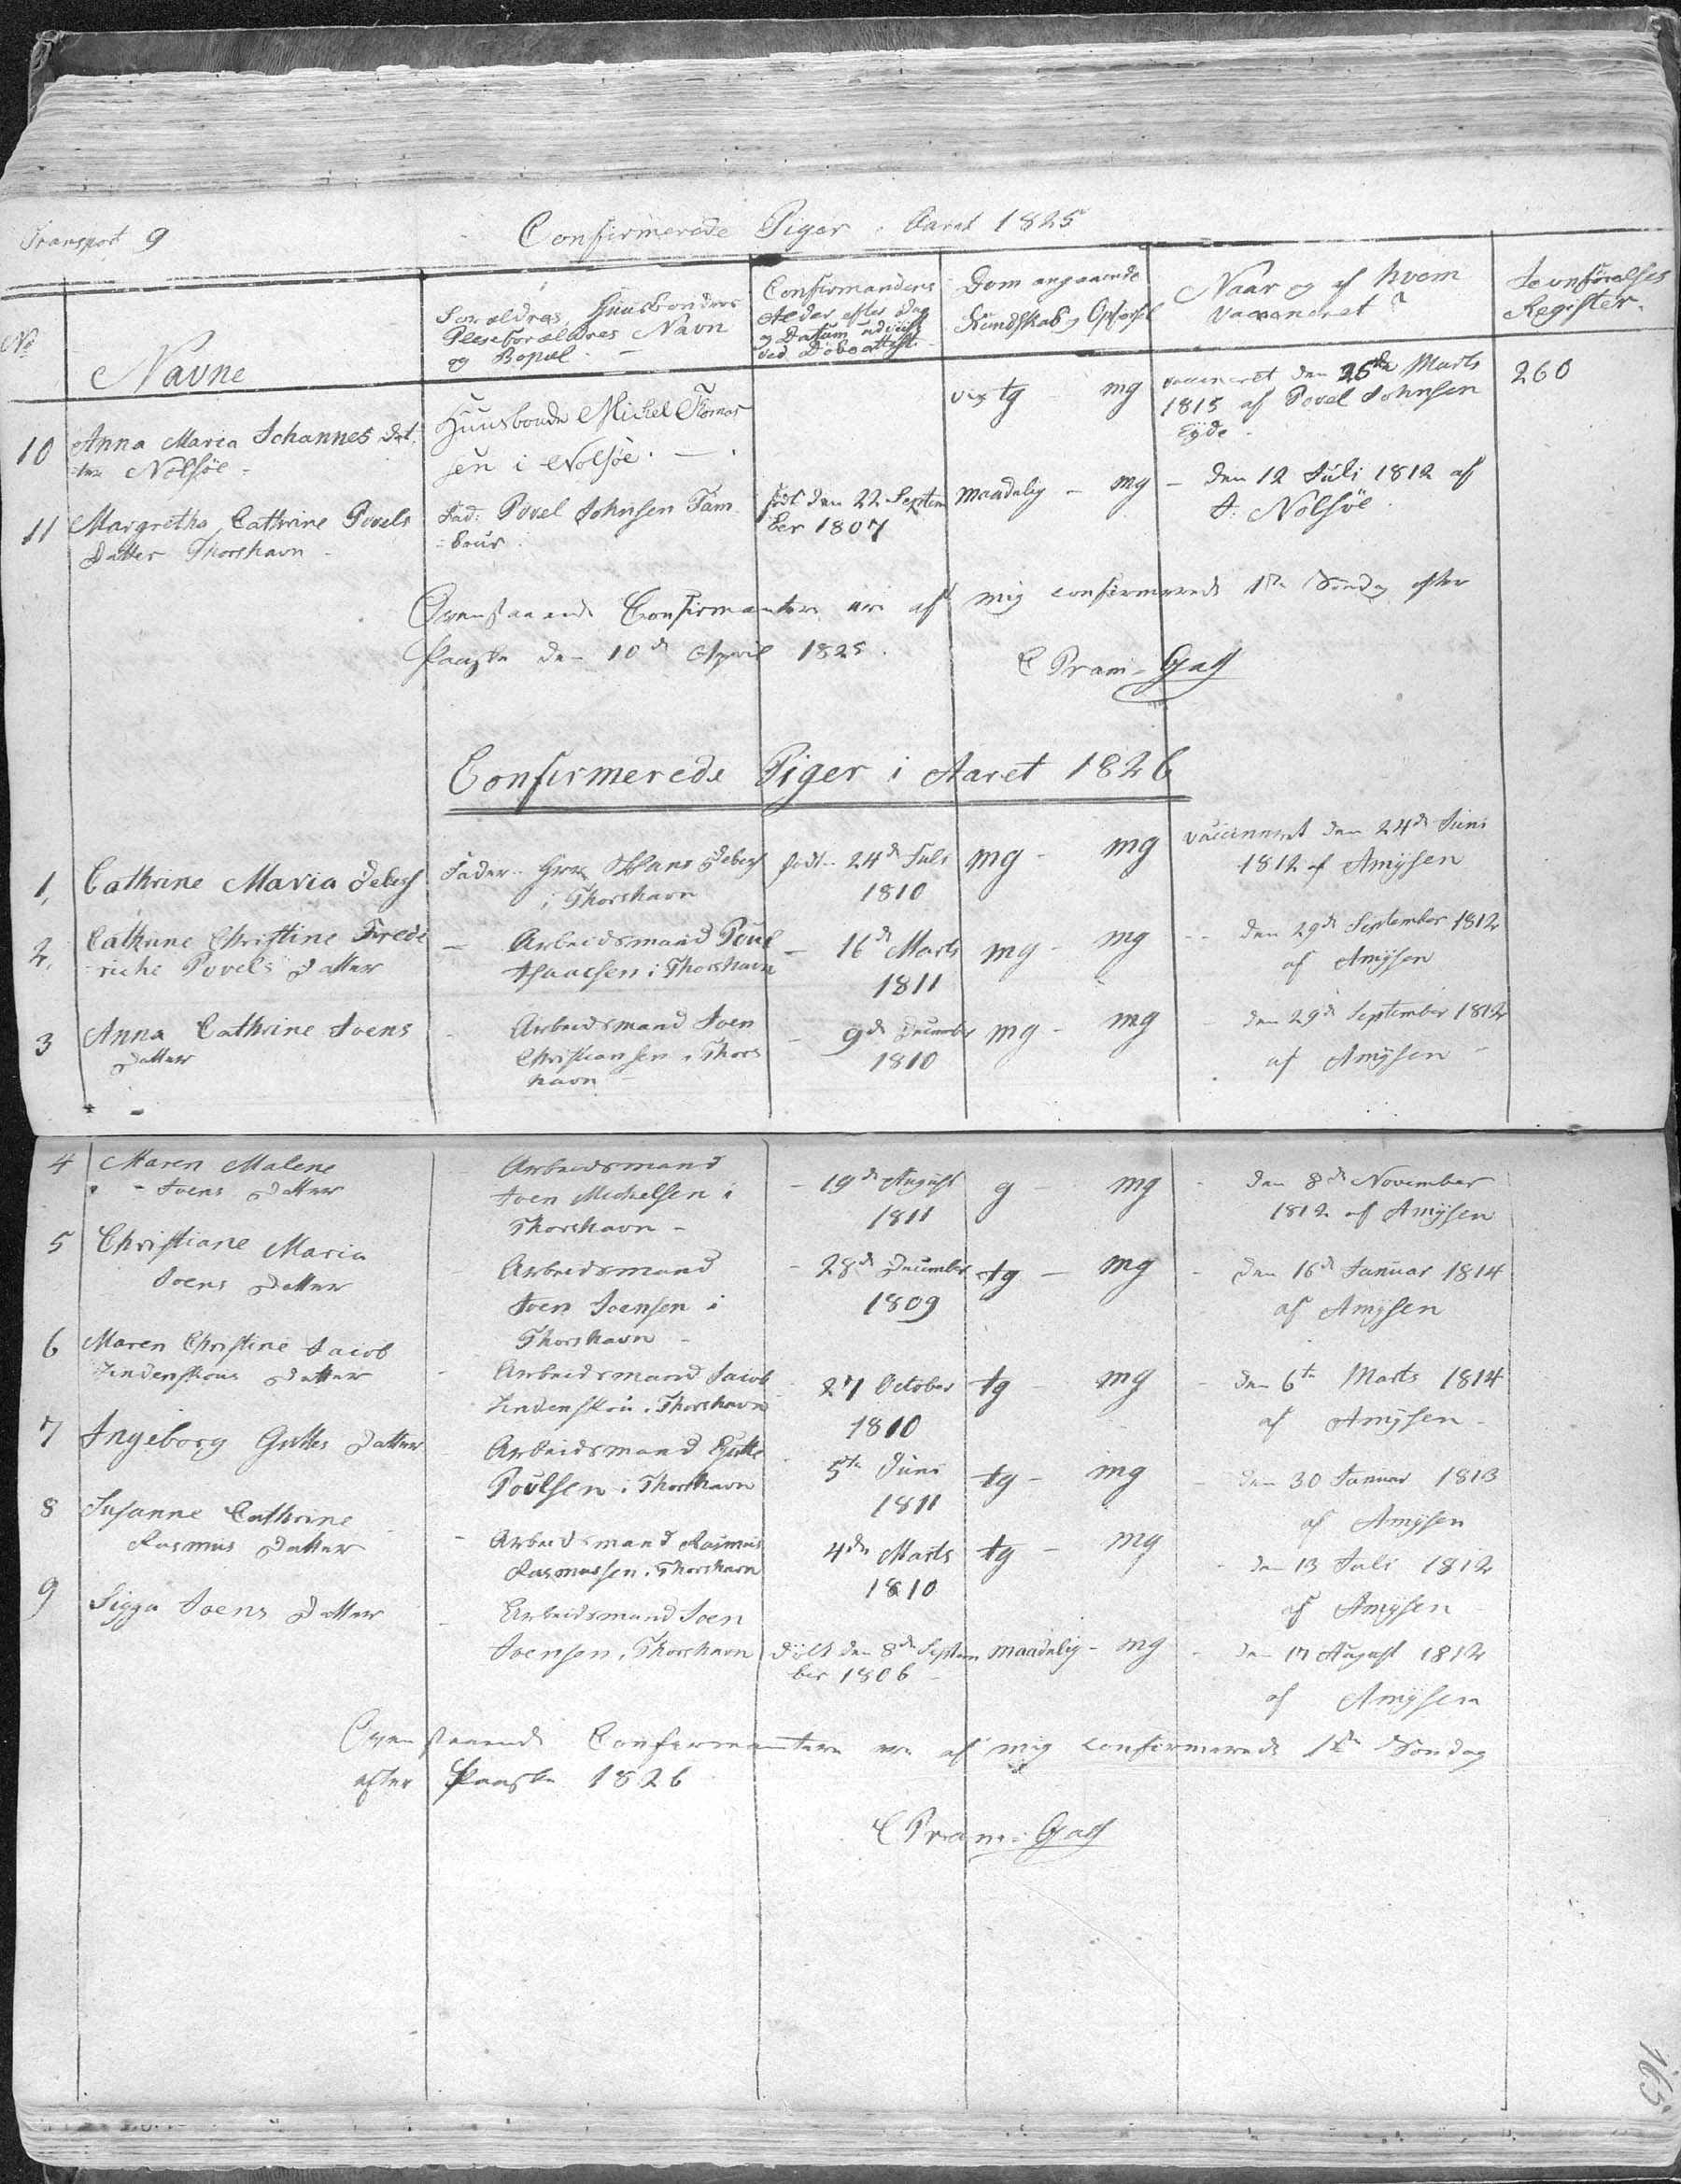 Transport 9
Confirmerede Piger i Aaret 1825
No
Navne
Forældres, Huusbonders
Pleieforældres Navn
og Bopæl
Confirmandens
Alder efter Dag
og Datum udviist
ved Døbeattest
Dom angaaende
Kundskab og Opførsel
Naar og af hvem
vaccineret?
Jevnførelses
Register.
10
Anna Maria Johannes Dat
ter Nolsöe
Huusbonde Michel Thomas
sen i Nolsöe.
tg mg
vaccineret den 26de Marts
1815 af Povel Johnsen
Eyde
260
11
Margretha Cathrine Povels
Datter Thorshavn
Fad: Povel Johnsen Tam
bour
født den 22 Septem
ber 1807
maadelig - mg
- den 12 Juli 1812 af
J: Nolsöe
Ovenstaaende Confirmanter ere af mig confirmerede 1ste Søndag efter
Paaske den 10de April 1825.
C Pram-Gad
Confirmerede Piger i Aaret 1826
1,
Cathrine Maria Debes
Fader Hans Debes
i Thorshavn
født 24de Juli
1810
mg - mg
vaccineret den 24de Juni
1812 af Amÿsen
2,
Cathrine Christine Frede
riche Povels Datter
- Arbeidsmand Poul
Isaacsen i Thorshavn
- 16de Marts
1811
mg - mg
- den 29de September 1812
af Amÿsen
3
Anna Cathrine Joens
Datter
- Arbeidsmand Joen
Christiansen i Thors
havn
- 9de December
1810
mg - mg
- den 29de September 1812
af Amÿsen
4
Maren Malene
Joens Datter
Arbeidsmand
Joen Michelsen i
Thorshavn -
- 19de August
1811
g - mg
- den 8de November
1812 af Amÿsen
5
Christiane Maria
Joens Datter
- Arbeidsmand
Joen Joensen i
Thorshavn -
- 28de December
1809
tg - mg
- den 16de Januar 1814
af Amÿsen
6
Maren Christine Jacob
Lindenskous Datter
- Arbeidsmand Jacob
Lindenskou i Thorshavn
- 27 October
1810
tg - mg
- den 6te Marts 1814
af Amÿsen -
7
Ingeborg Guttes Datter
- Arbeidsmand Gutte
Poulsen i Thorshavn
5te Juni
1811
tg - mg
- den 30 Januar 1813
af Amÿsen
8
Susanne Cathrine
Rasmus Datter
- Arbeidsmand Rasmus
Rasmussen i Thorshavn
4de Marts
1810
tg - mg
- den 13 Juli 1812
af Amÿsen
9
Sigga Joens Datter
- Arbeidsmand Joen
Joensen i Thorshavn
døbt den 8de Septem
ber 1806 -
maadelig - mg
- den 17 August 1812
af Amÿsen
Ovenstaaende Confirmanter ere af mig confirmerede 1ste Søndag
efter Paaske 1826
C Pram-Gad
163